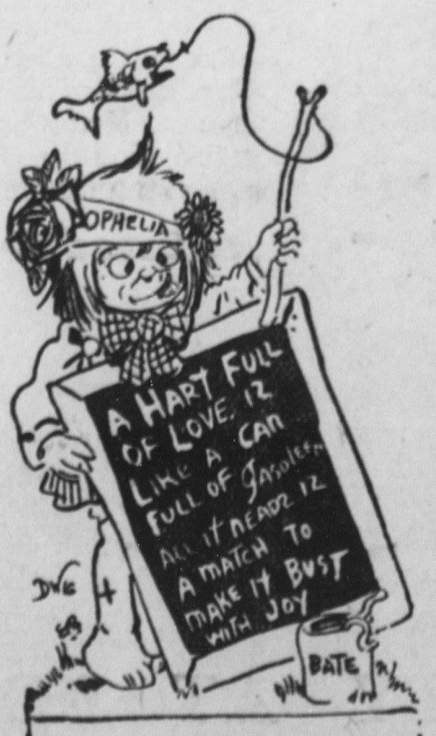 OPHELIA
A HART FULL
OF LOVE IZ
LIKE A CAN
FULL OF GASOLEEN
ALL IT NEADZ IZ
A MATCH TO
MAKE IT BUST
WITH JOY
BATE
DWIG